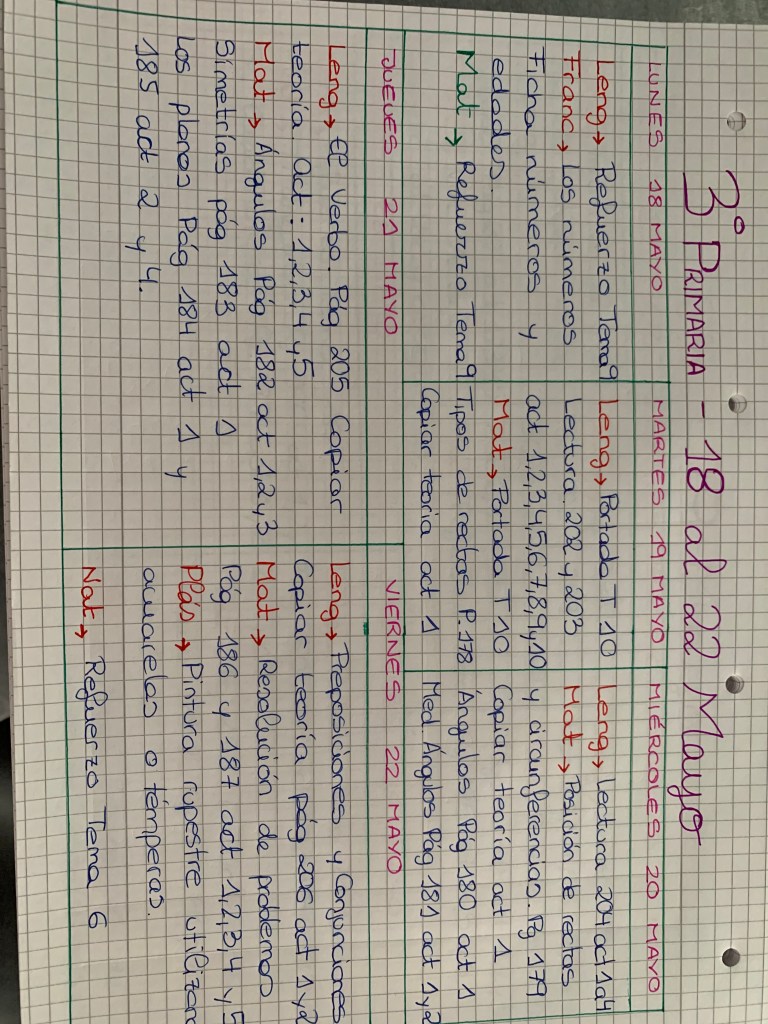 3º PRIMARIA - 18 al 22 Mayo
LUNES 18 MAYO
Leng → Refuerzo Tema 9
Franc → Los números
Ficha números y
edades.
Mat → Refuerzo Tema 9
MARTES 19 MAYO
Leng → Portada T 10
Lectura 202 y 203
act 1,2,3,4,5,6,7,8,9 y 10
Mat → Portada T 10
Tipos de rectas P. 178
Copiar teoría act 1
MIÉRCOLES 20 MAYO
Leng → Lectura 204 act 1 a 4
Mat → Posición de rectas
y circunferencias. Pg 179
Copiar teoría act 1
Ángulos Pág 180 act 1
Med Ángulos Pág 181 act 1 y 2
JUEVES 21 MAYO
Leng → El verbo. Pág 205 Copiar
teoría act: 1,2,3,4 y 5
Mat → Ángulos Pág 182 act 1,2 y 3
Simetrías pág 183 act 1
Los planos Pág 184 act 1 y
185 act 2 y 4.
VIERNES 22 MAYO
Leng → Preposiciones y Conjunciones
Copiar teoría pág 206 act 1 y 2
Mat → Resolución de problemas
Pág 186 y 187 act 1,2,3,4 y 5
Plás → Pintura rupestre utilizan
acuarelas o témperas.
Nat → Refuerzo Tema 6